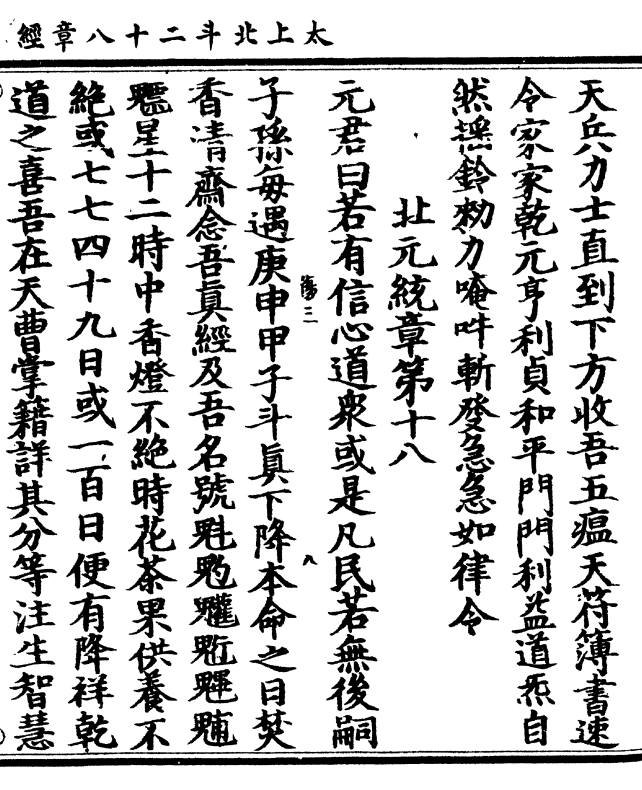 太上北斗二十八章經
天兵力士直到下方收吾五瘟天符簿書速
令家家乾元亨利貞和平門門利益道炁自
然搖鈴勑力唵吽斬發急急如律令
北元統章第十八
元君曰若有信心道衆或是凡民若無後嗣
子孫每遇庚申甲子斗眞下降本命之日焚
香清齋念吾眞經及吾名號魁魀䰢魓䰡魒
魒星十二時中香燈不絶時花茶果供養不
絶或七七四十九日或一百日便有降祥乾
道之喜吾在天曹掌籍詳其分等注生智慧